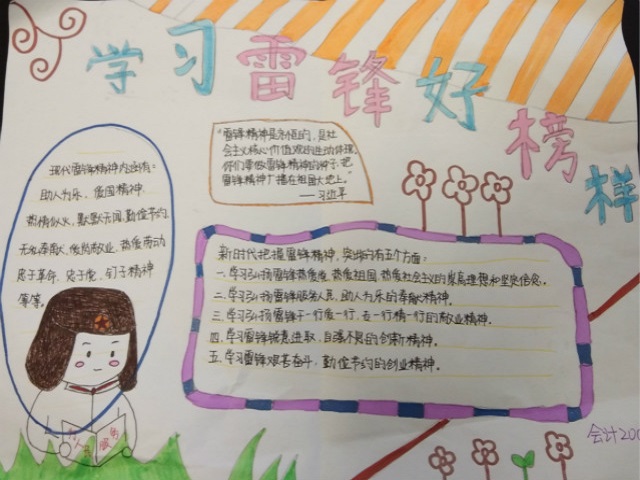 学习雷锋好榜样
"雷锋精神是永恒的，是社
会主义核心价值观的生动体现
你们要做雷锋精神的种子，把
雷锋精神广播在祖国大地上。"
——习近平
现代雷锋精神内涵有：
助人为乐、爱国精神、
热情似火、默默无闻、勤俭节约
无私奉献、爱岗敬业、热爱劳动
关于革命、忠于党、钉子精神
等等。
新时代把握雷锋精神，突出的有五个方面：
一、学习弘扬雷锋热爱党、热爱祖国、热爱社会主义的崇高理想和坚定信念。
二、学习弘扬雷锋服务人民、助人为乐的奉献精神。
三、学习弘扬雷锋干一行爱一行、专一行精一行的敬业精神。
四、学习雷锋锐意进取、自强不息的创新精神。
五、学习雷锋艰苦奋斗、勤俭节约的创业精神。
人
服务
会计200